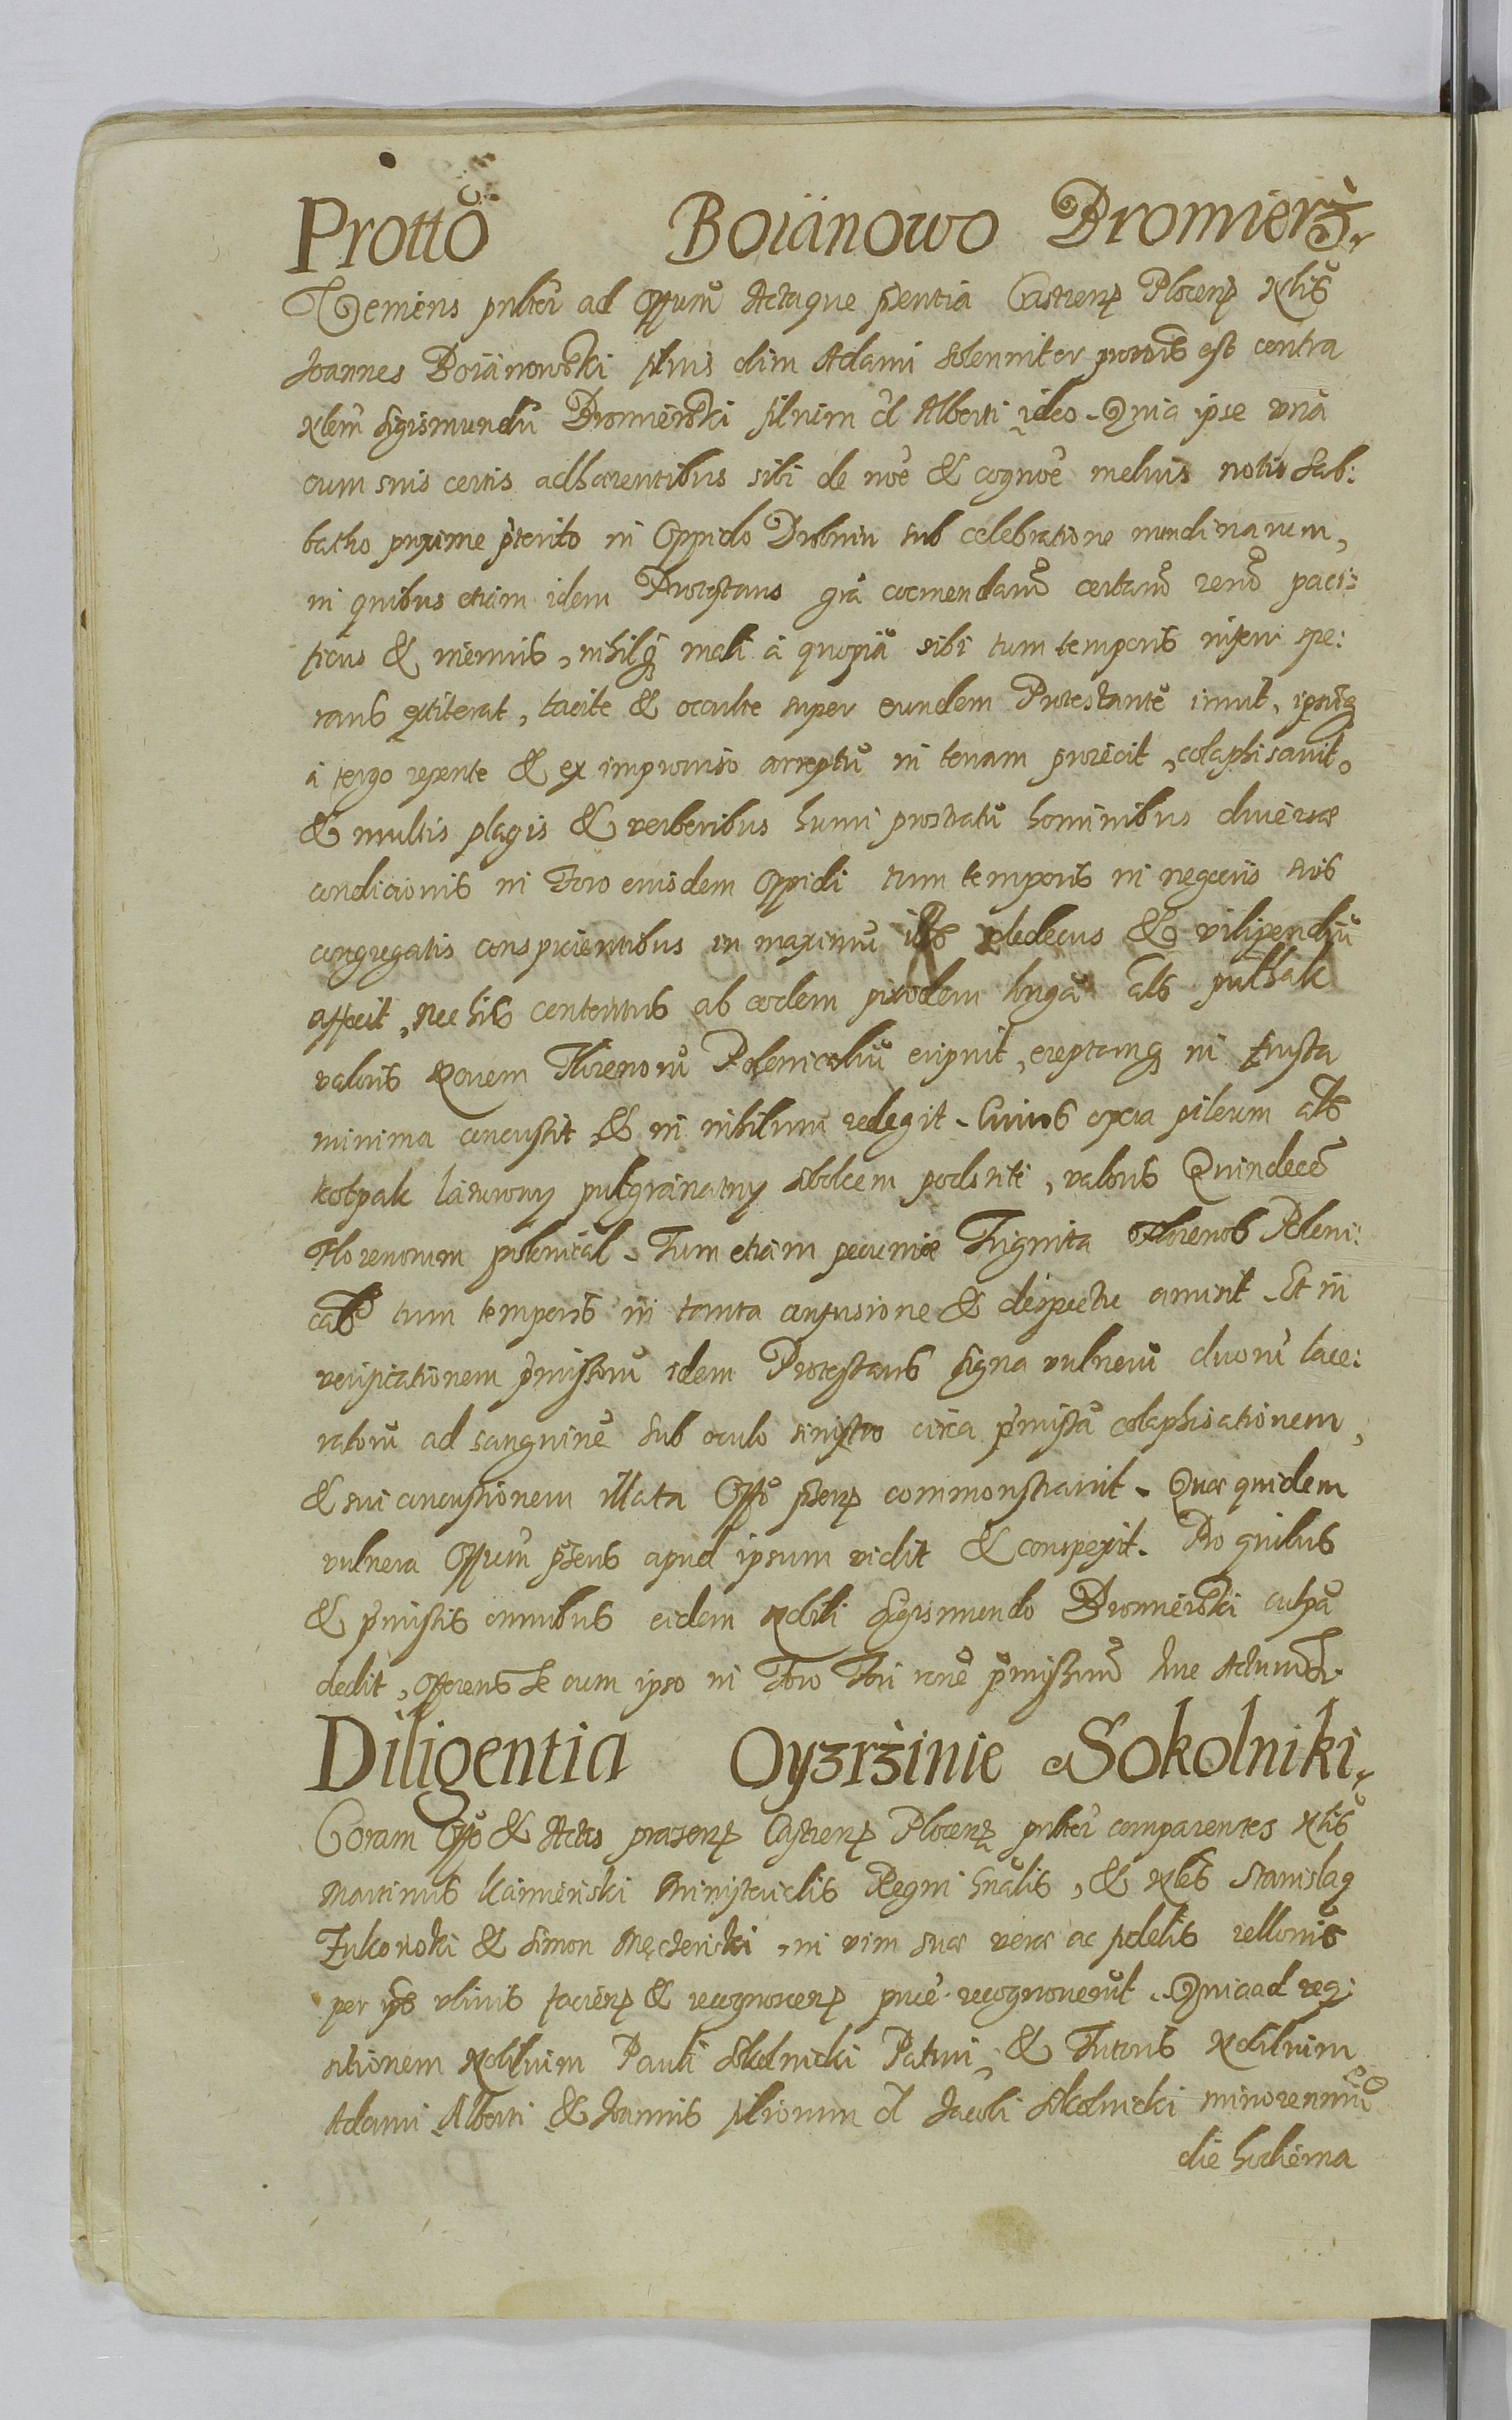 Protto Boiänowo Dromierz.
Veniens pnltèr ad Offum Actaque pñentia Castrens Plocens Nlis
Joannes Boiänowski filius olim Adami solenniter prottus est contra
Nlem Sigismundū Dromierski filium ol Alberti ideo. Quia ipse vna
cum suis certis adhærentibus sibi de noē & cognoē melius notis Sab:
batho proxime pterito in Oppido Drobnin sub celebratione nundinarum,
in quibus etiam idem Protestans gīa coemendarū certarū rerū paci:
ficus & inermis, nihilq mali à quopiā sibi tum temporis inferri spe:
rans extiterat, tacite & occulte super eundem Protestantē irruit, ipsūq
à tergo repente & ex improviso arreptū in terram proiecit, colaphisavit,
& multis plagis & verberibus humi prostratū hominibus diversæ
condicionis in Foro eiusdem Oppidi tum temporis in negociis suis
congregatis conspicientibus in maximū dedecus & vilipendiū
affecit, Nec his contentus ab eodem longā als pulhak
valoris Novem Florenorū Polonicaliū eripuit, ereptamq in frusta
minima concussit & in nihilum redegit. Cuius opera pileum als
kołpak lazurowy pułgranatny sobolcem podsziti, valoris Quindecē
Florenorum polonical. Tum etiam pecuniæ Triginta Florenos Poloni:
cales tum temporis in tanta confusione & despectu amisit. Et in
verificationem pmissorū idem Protestans signa vulnerū duorū lace:
ratorū ad sanguinē sub oculo sinistro circa pmissā colaphisationem,
& sui concussionem illata Offo pñens commonstravit. Quæ quidem
vulnera Offum pñens apud ipsum vidit & conspexit. Pro quibus
& pmissis omnibus eidem Nobili Sigismundo Dromierski culpā
dedit, offerens se cum ipso in Foro Fori roñe pmissorū iure Acturum.
Diligentia Oyzrzinie Sokolniki.
Coram Offo & Actis præsens Castrens Plocens pnltèr comparentes Nlis
Martinus Kamienski Ministerialis Regni gñalis, & Nles Stanislaq
Zukowski & Simon Męczenski, in vim suæ veræ ac fidelis rellonis
per ipos vlivis faciens & recognoscens pñce recognoverūt. Quia ad req:
sitionem Nobilium Pauli Sokolnicki Patrui, & Tutoris Nobilium
Adami Alberti & Joannis filiorum ol Jacobi Sokolnicki minorenniū
die hodierna